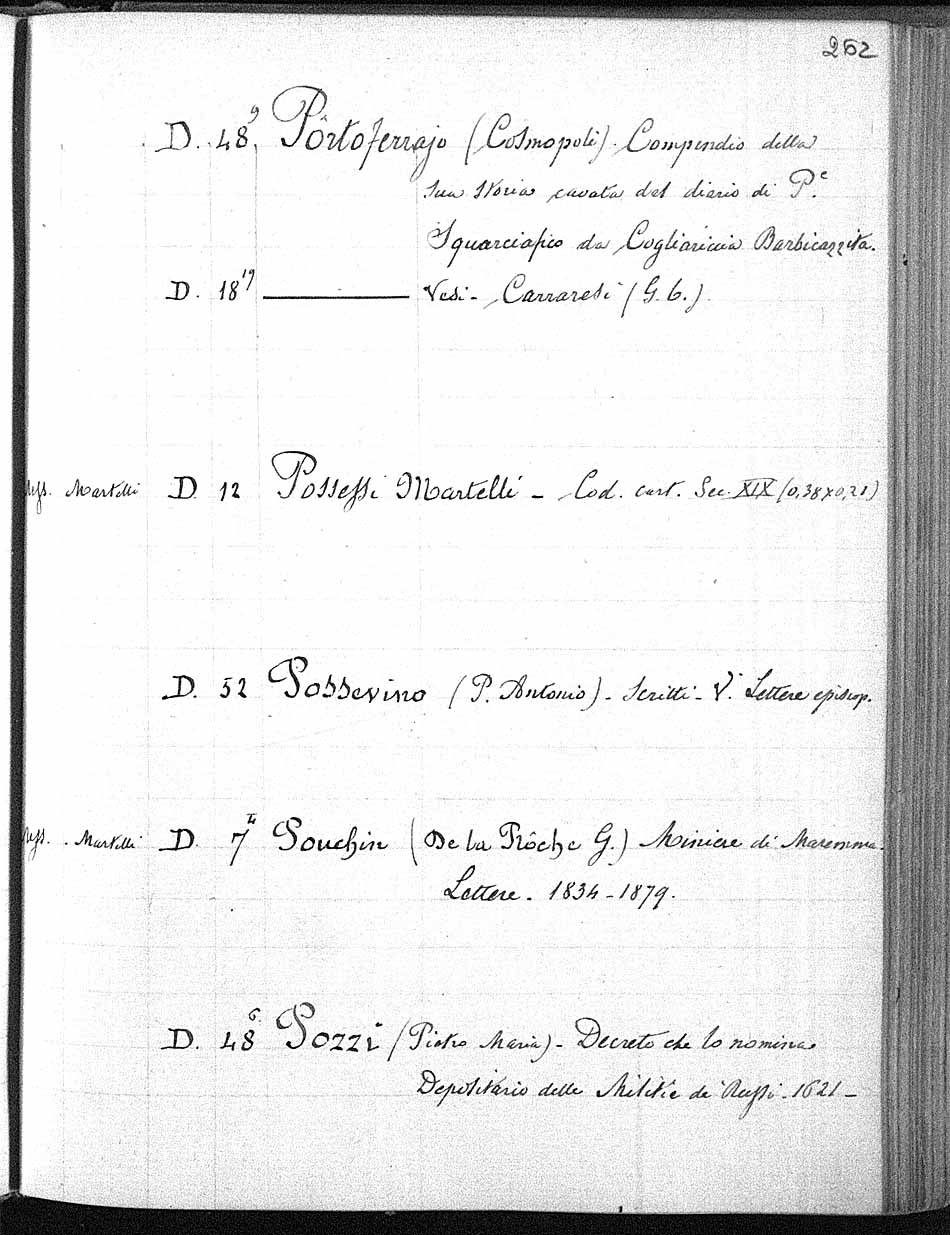 262
D. 48⁹ Portoferrajo (Cosmopoli). Compendio della
sua storia cavata dal diario di P.e
Squarciafico da Cogliaricia Barbicazzita.
D. 18¹⁹ ——— Vedi - Carraresi (G. C.)
Mss. Martelli D 12 Possessi Martelli - Cod. cart. Sec. XIX (0,38x0,21)
D. 52 Possevino (P. Antonio) - Scritti - V. Lettere episcop.
Mss. Martelli D. 7 Pouchin (De la Rôche G.) Miniere di Maremma.
Lettere. 1834-1879.
D. 48⁶ Pozzi (Pietro Maria) - Decreto che lo nomina
Depositario delle Militie di Russi. 1621 -